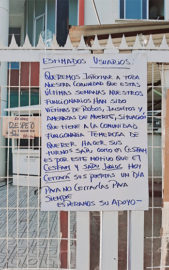 ESTIMADOS USUARIOS:
QUEREMOS INFORMAR A TODA
NUESTRA COMUNIDAD QUE ESTAS
ÚLTIMAS SEMANAS NUESTROS
FUNCIONARIOS HAN SIDO
VÍCTIMAS DE ROBOS, INSULTOS Y
AMENAZAS DE MUERTE, SITUACIÓN
QUE TIENE A LA COMUNIDAD
FUNCIONARIA TEMEROSA DE
QUERER HACER SUS
TURNOS SAR, COMO EN CESFAM
ES POR ESTE MOTIVO QUE EL
CESFAM Y HOY
CERRARÁ SUS PUERTAS UN DÍA
PARA NO CERRARLAS PARA
SIEMPRE
ESPERAMOS SU APOYO